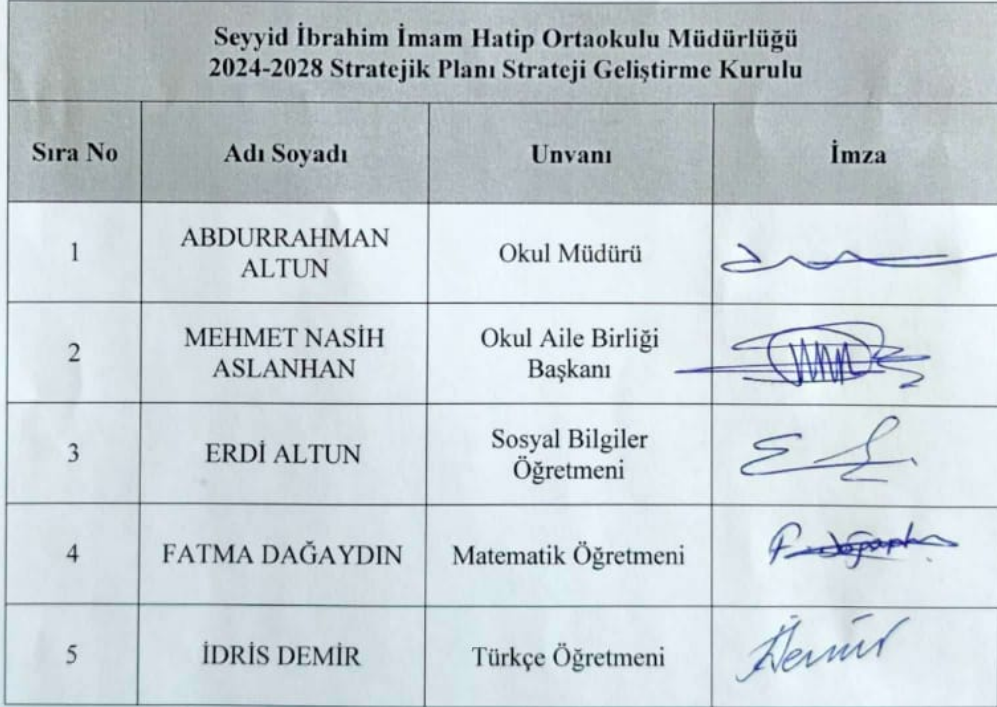 Seyyid İbrahim İmam Hatip Ortaokulu Müdürlüğü
2024-2028 Stratejik Planı Strateji Geliştirme Kurulu
Sıra No Adı Soyadı Unvanı İmza
1 ABDURRAHMAN ALTUN Okul Müdürü
2 MEHMET NASİH ASLANHAN Okul Aile Birliği Başkanı
3 ERDİ ALTUN Sosyal Bilgiler Öğretmeni
4 FATMA DAĞAYDIN Matematik Öğretmeni
5 İDRİS DEMİR Türkçe Öğretmeni Demir